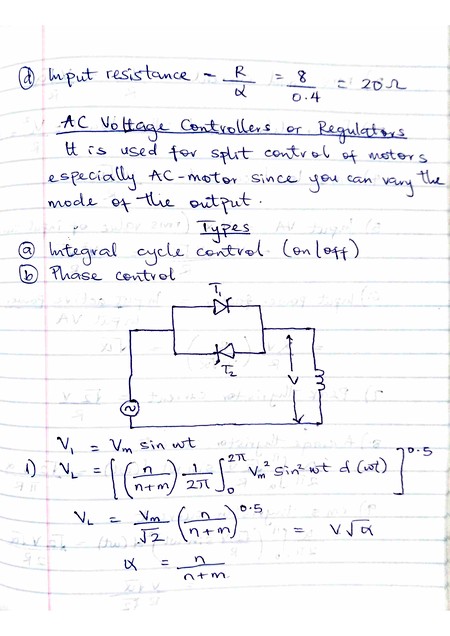 (d) Input resistance - R/α = 8/0.4 = 20Ω
AC Voltage Controllers or Regulators
It is used for split control of motors
especially AC-motor since you can vary the
mode of the output.
Types
(a) Integral cycle control (on/off)
(b) Phase control
T₁
T₂
V
V₁ = Vm sin wt
1) V_L = [(n/(n+m)) 1/2π ∫₀^2π Vm² sin² wt d(wt)]^0.5
V_L = Vm/√2 (n/(n+m))^0.5 = V√α
α = n/(n+m)